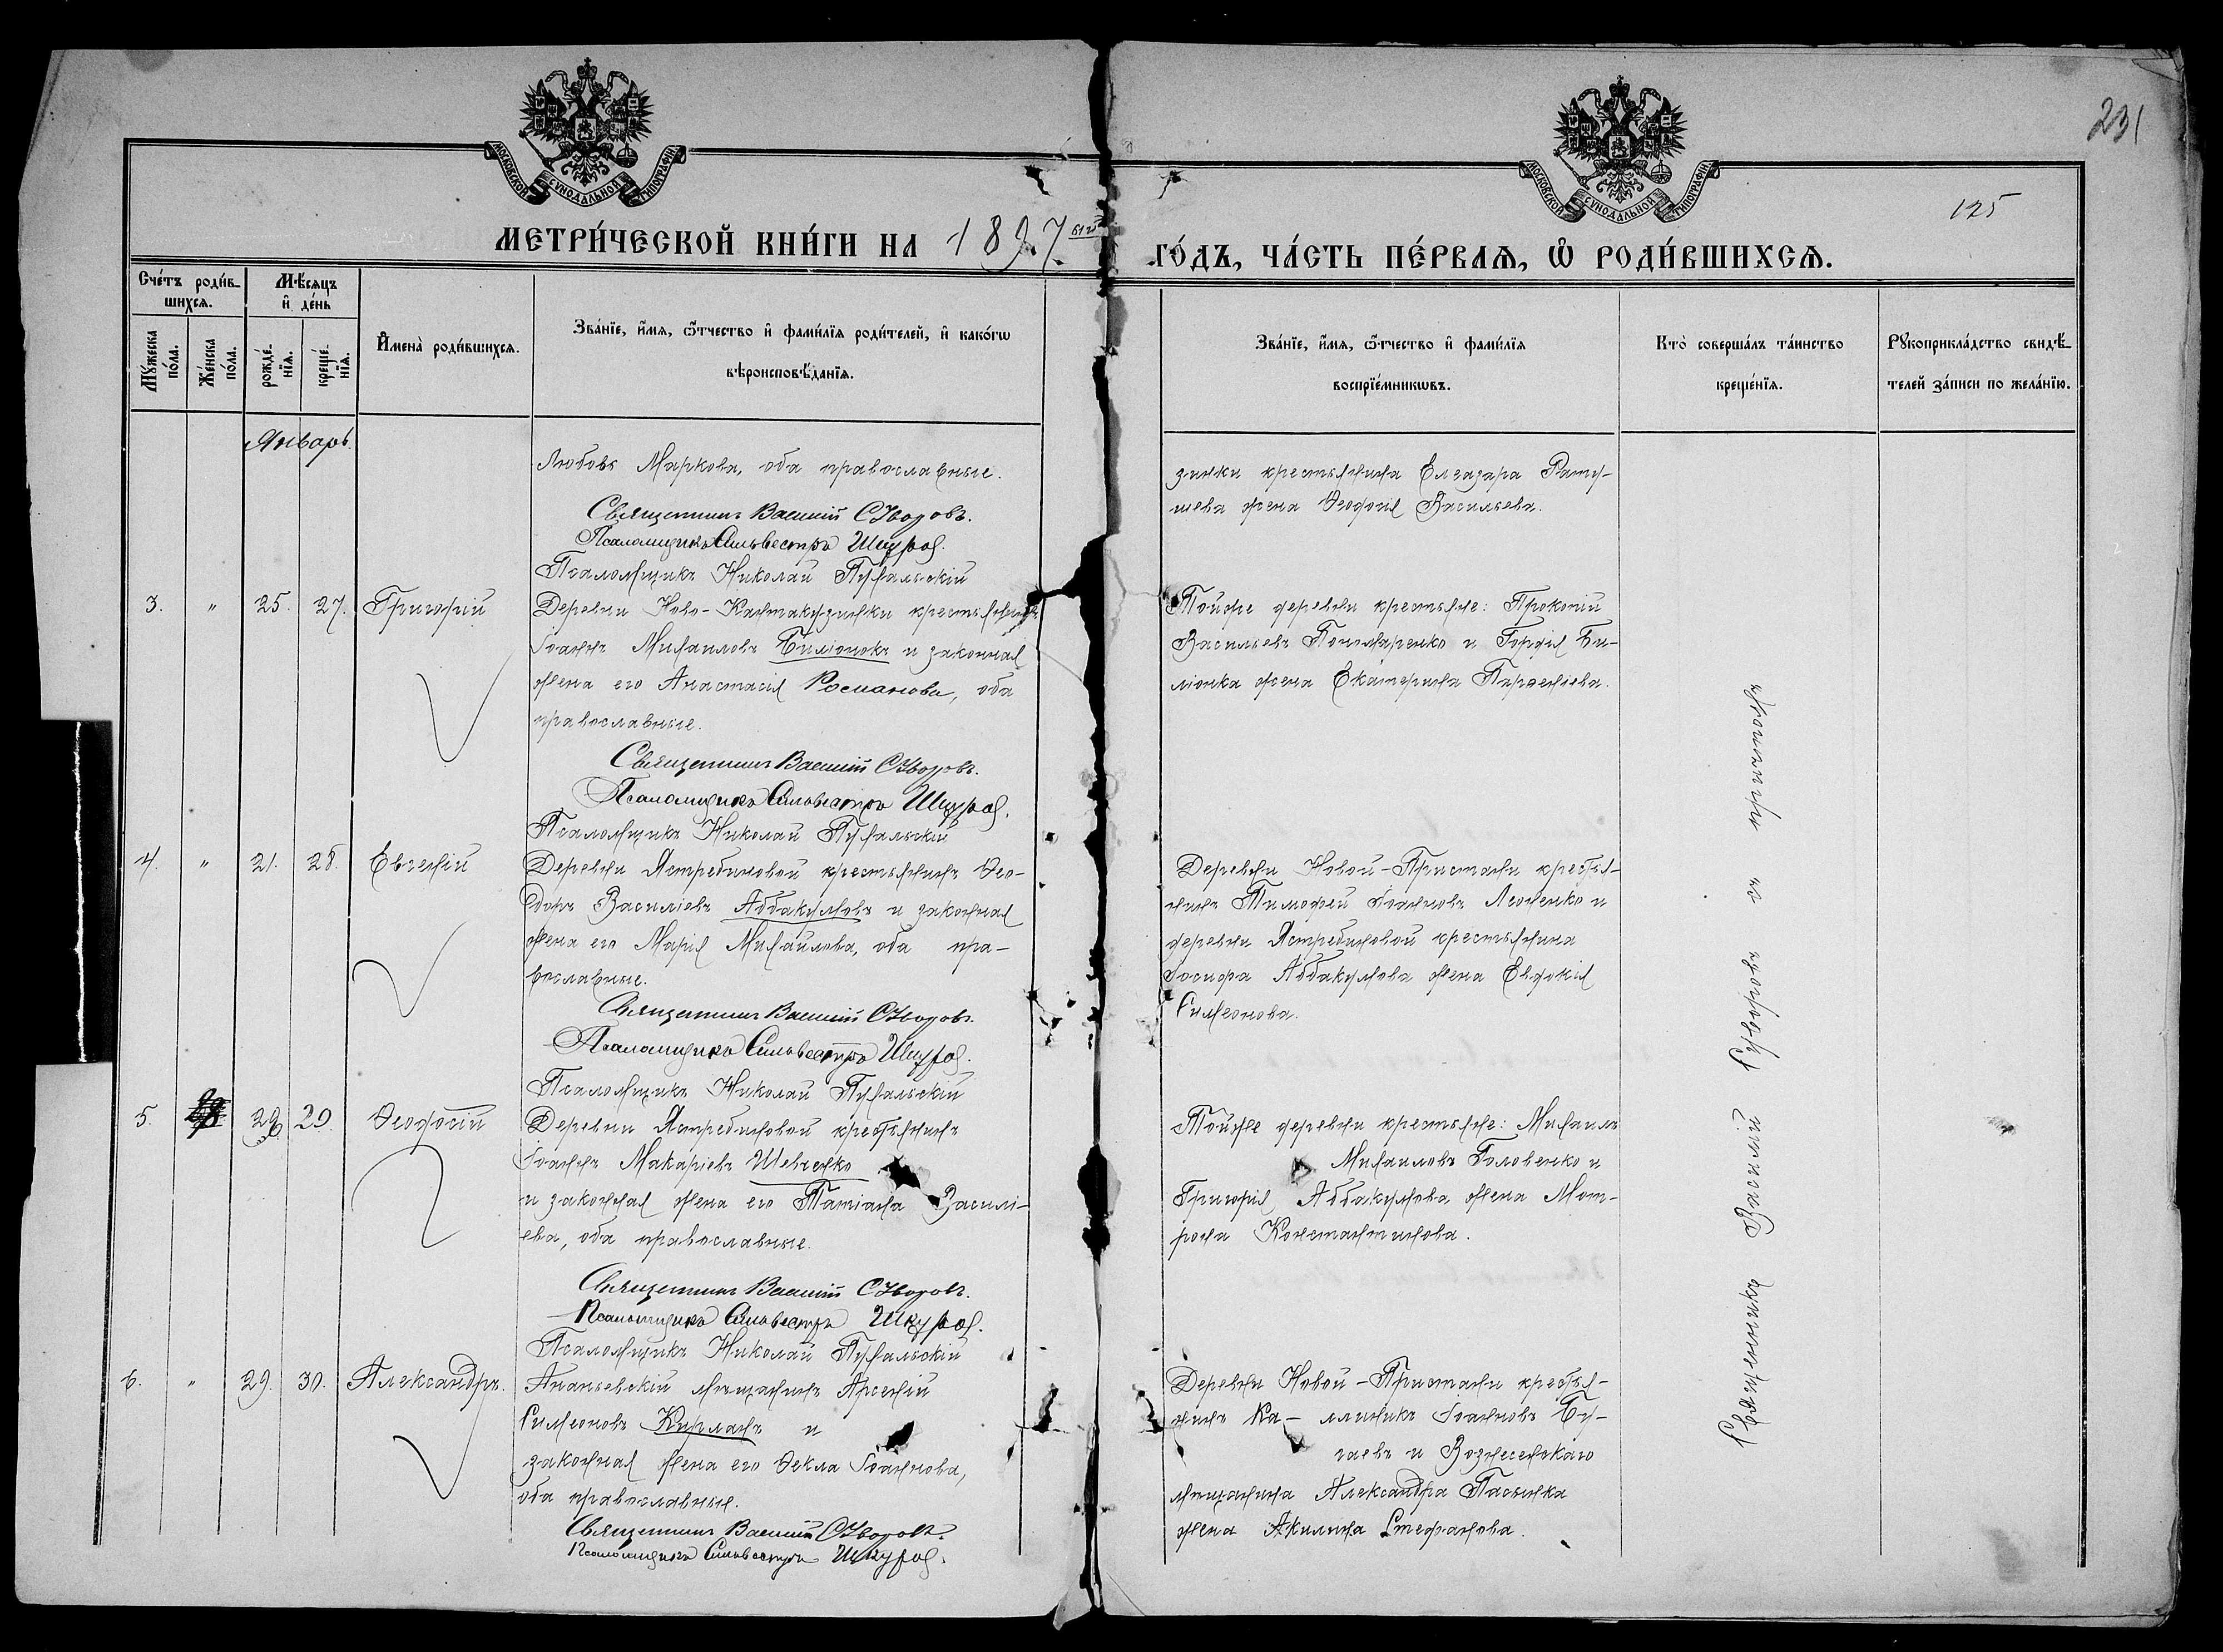 231
125
МОСКОВСКОЙ СѴНОДАЛЬНОЙ ТИПОГРАФІИ
МОСКОВСКОЙ СѴНОДАЛЬНОЙ ТИПОГРАФІИ
МЕТРИ́ЧЕСКОЙ КНИ́ГИ НА 1897ый ГО́ДЪ, ЧА́СТЬ ПЕ́РВАѦ, Ѡ҆ РОДИ́ВШИХСѦ.
Сче́тъ роди́в-
шихсѧ.
Мѣ́сяцъ
и҆ де́нь
Мꙋ́жеска
по́ла.
Же́нска
по́ла.
рожде́-
нїѧ.
креще́-
нїѧ.
И҆мена̀ роди́вшихсѧ.
Зва́нїе, и҆́мѧ, ѻ҆́тчество и҆ фами́лїѧ роди́телей, и҆ како́гѡ
вѣроисповѣ́данїѧ.
Зва́нїе, и҆́мѧ, ѻ҆́тчество и҆ фами́лїѧ
воспрїе́мникѡвъ.
Кто̀ соверша́лъ та́инство
креще́нїѧ.
Рꙋкоприкла́дство свидѣ́-
телей за́писи по жела́нїю.
Январь.
Любовь Маркова, оба православные.
Священникъ Василій Суворовъ.
Псаломщикъ Сильвестръ
Псаломщикъ Николай
зинки крестьянина Елеазара Рату-
шева жена Ѳеодосія Васильева.
3. " 25. 27. Григорій
Деревни Ново-Кантакузинки крестьянинъ
Іоаннъ Михаиловъ Биліонокъ и законная
жена его Анастасія Романова, оба
православные.
Священникъ Василій Суворовъ.
Псаломщикъ Сильвестръ
Псаломщикъ Николай
Тойже деревни крестьяне: Прокопій
Васильевъ Пономаренко и Гордія Би-
ліонка жена Екатерина Парѳеніева.
4. " 21. 28. Евгеній
Деревни Ястребиновой крестьянинъ Ѳео-
доръ Василіевъ Аббакумовъ и законная
жена его Марія Михаилова, оба пра-
вославные.
Священникъ Василій Суворовъ.
Псаломщикъ Сильвестръ
Псаломщикъ Николай
Деревни Новой-Пристани крестья-
нинъ Тимоѳей Іоанновъ Леоненко и
деревни Ястребиновой крестьянина
Іосифа Аббакумова жена Евдокія
Симеонова.
5. 29. Ѳеодосій
Деревни Ястребиновой крестьянинъ
Іоаннъ Макаріевъ Шевченко
и законная жена его Татіана Василі-
ева, оба православные.
Священникъ Василій Суворовъ.
Псаломщикъ Сильвестръ
Псаломщикъ Николай
Тойже деревни крестьяне: Михаилъ
Михаиловъ Головенко и
Григорія Аббакумова жена Мат-
рона Константинова.
6. " 29. 30. Александръ.
Ананьевскій мѣщанинъ Арсеній
Симеоновъ Кирланъ и
законная жена его Ѳекла Іоаннова,
оба православные.
Священникъ Василій Суворовъ.
Псаломщикъ Сильвестръ
Деревни Новой-Пристани крестья-
нинъ Ка- линикъ Іоанновъ Бу-
гаевъ и Вознесенскаго
мѣщанина Александра
жена Акилина Стефанова.
Священникъ Василій Суворовъ съ причтомъ